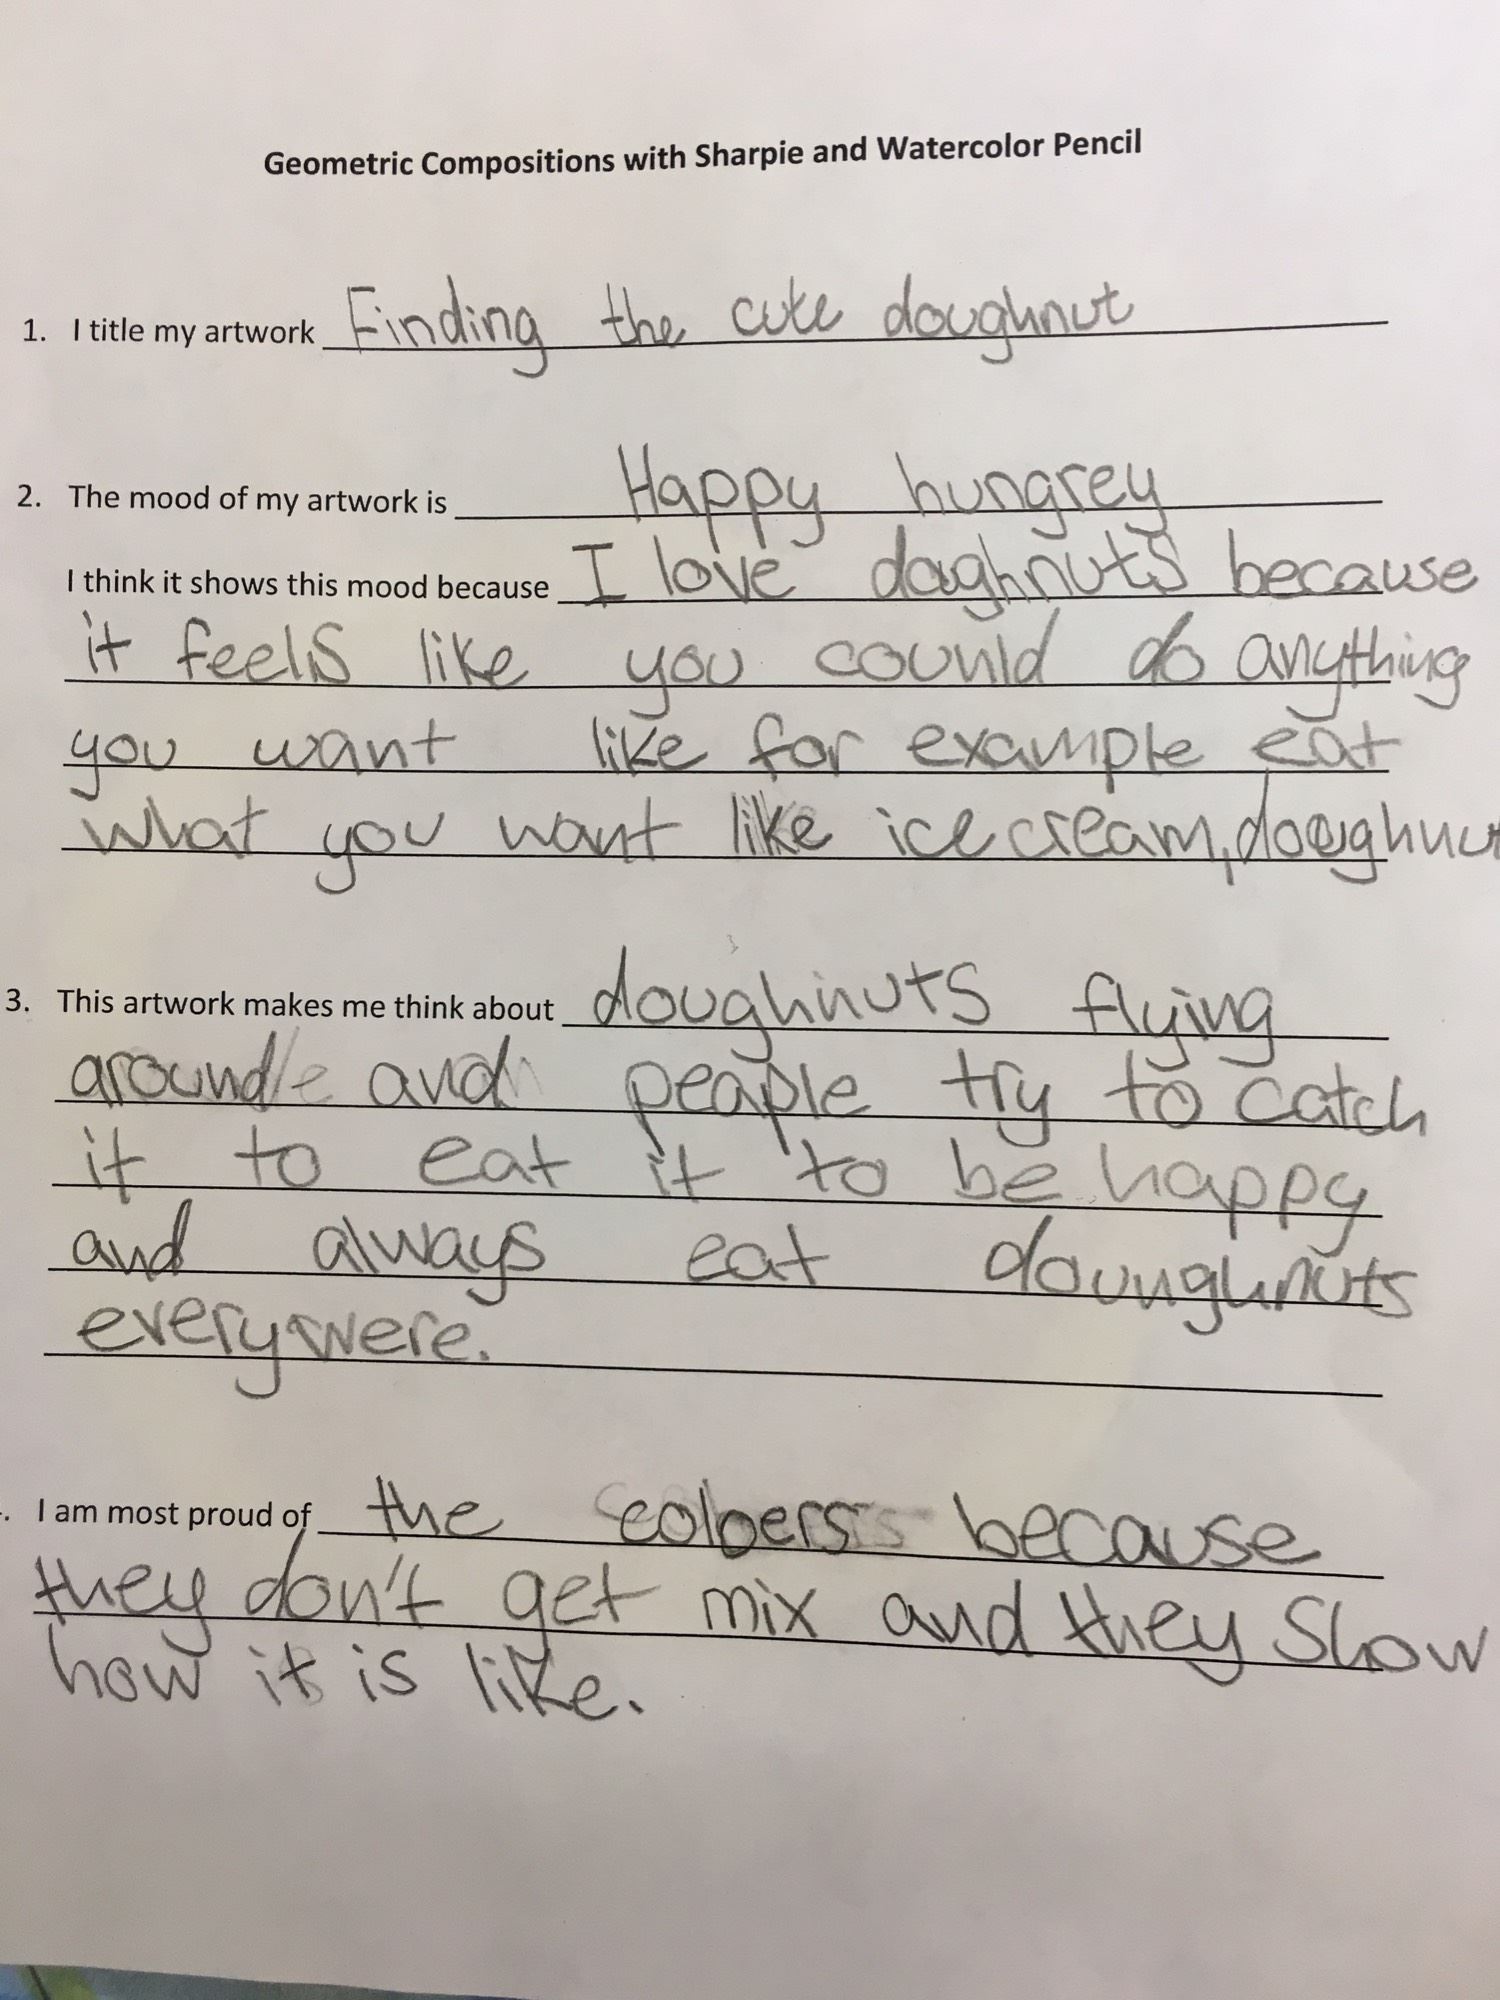 Geometric Compositions with Sharpie and Watercolor Pencil
1. I title my artwork Finding the cute doughnut
2. The mood of my artwork is Happy hungrey
I think it shows this mood because I love doghnuts because
it feels like you counld do anything
you want like for example eat
what you want like ice cream, dooghnut
3. This artwork makes me think about doughnuts flying
around and peaple try to catch
it to eat it to be happy
and always eat dounghnuts
everywere.
. I am most proud of the coloers because
they don't get mix and they show
how it is like.